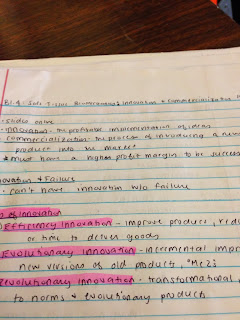 - slides online
- innovation - the profitable implementation of ideas
- commercialization - the process of introducing a new
product into the market
* must have a higher profit margin to be success
novation & Failure
- can't have innovation w/o failure
of innovation
Efficiency innovation - improve product, red
or time to deliver goods
Evolutionary innovation - incremental impr
new versions of old product,
Revolutionary innovation - transformational,
to norms & evolutionary products